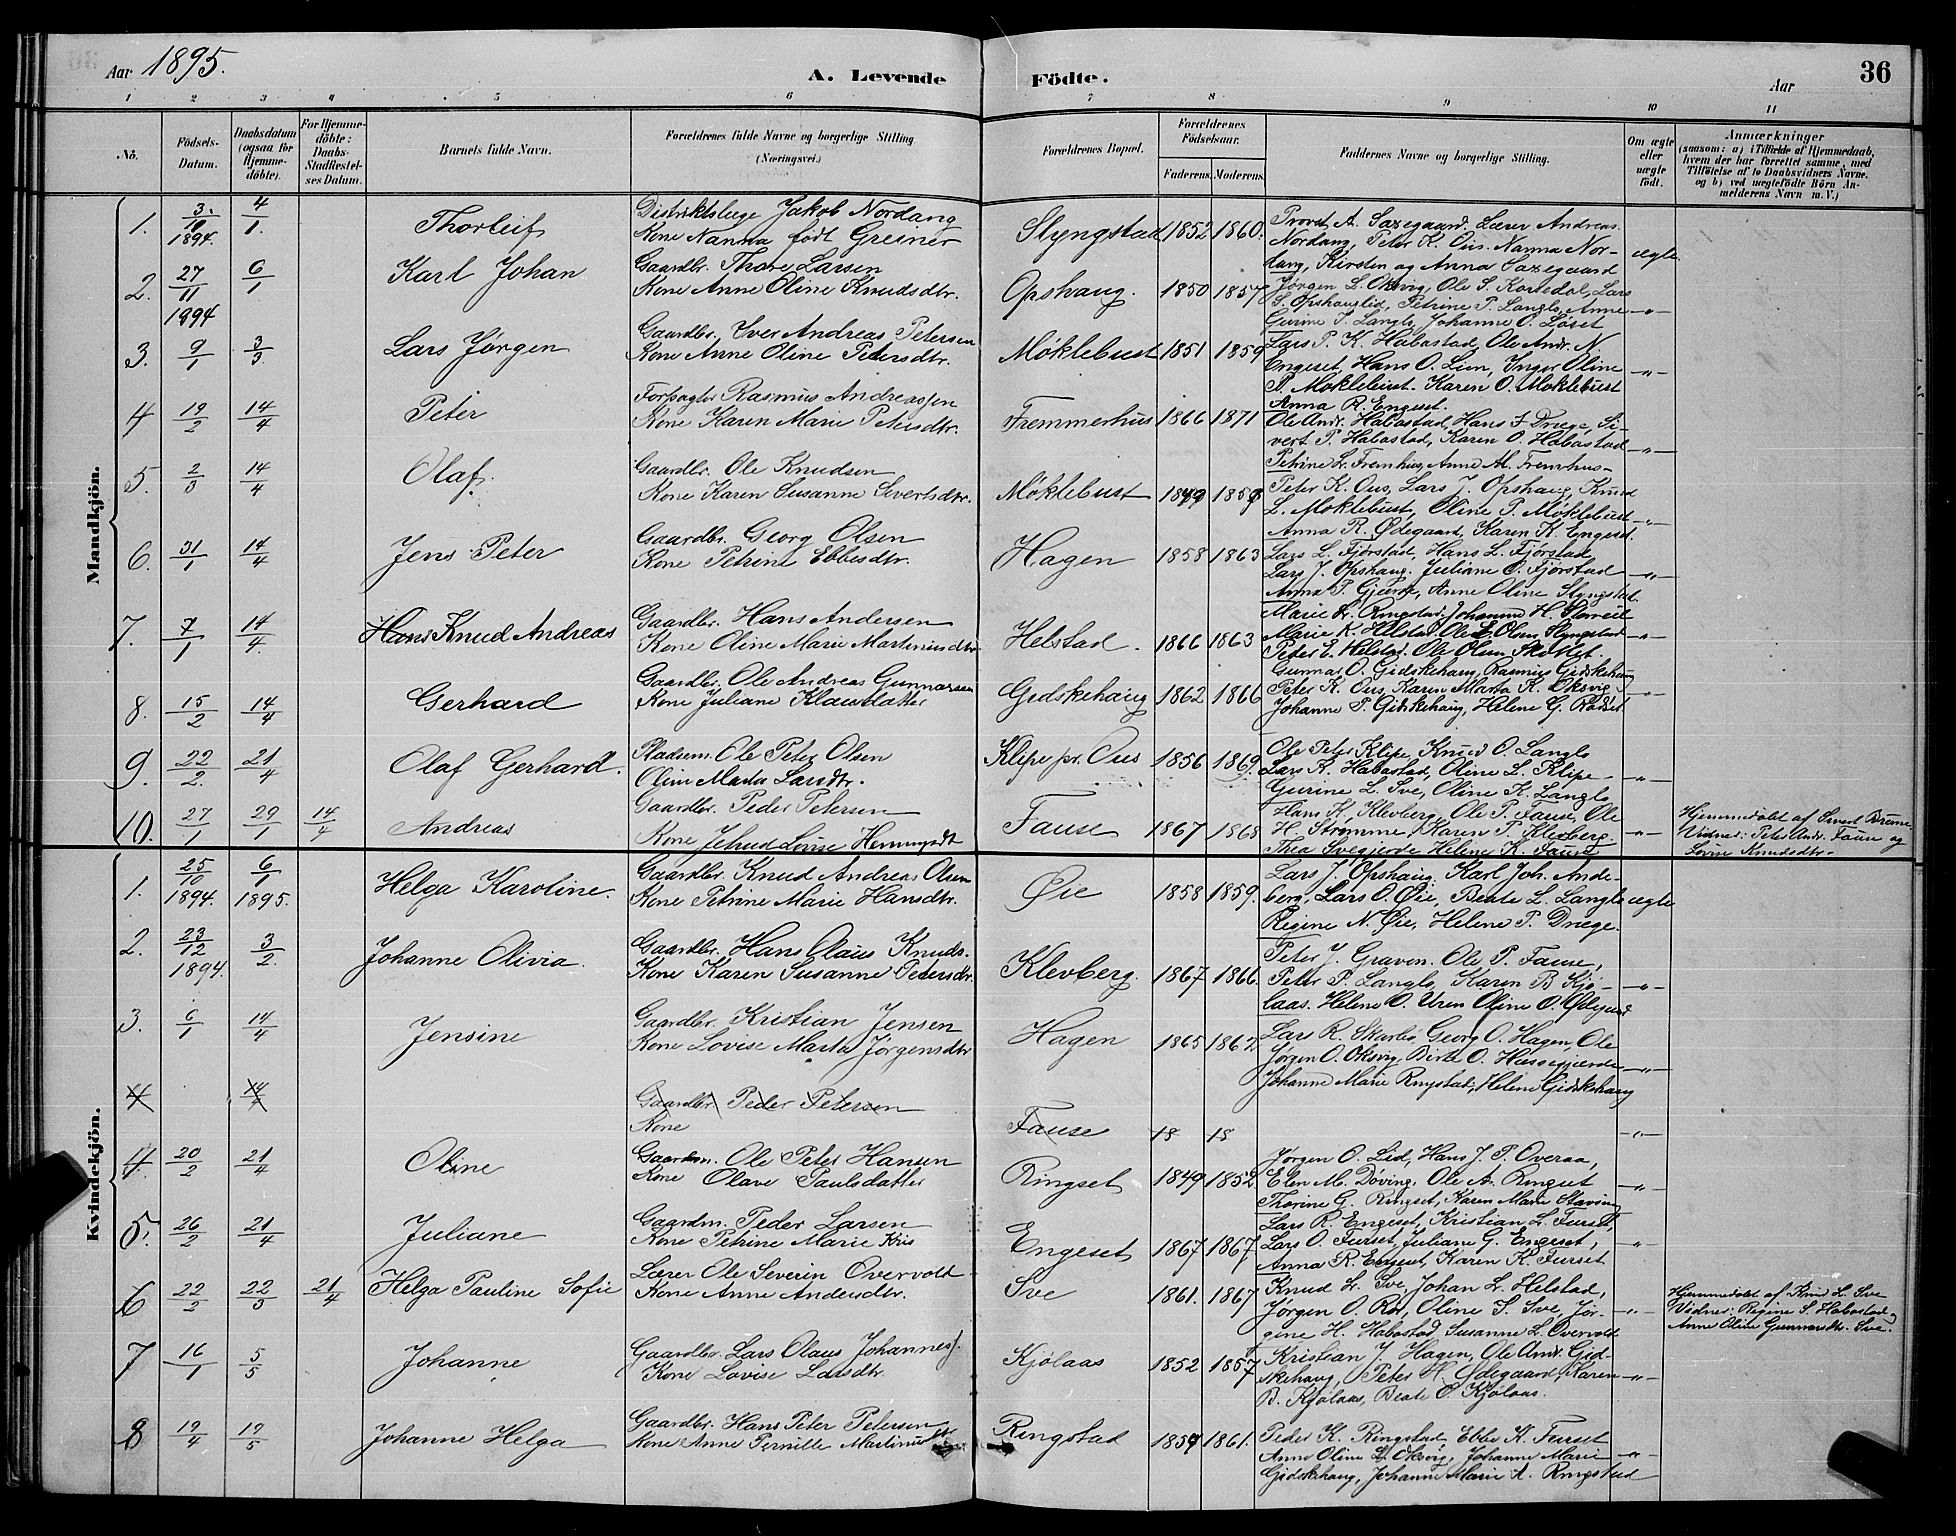 Aar 1895.
A. Levende Födte.
Aar
36
1 2 3 4 5 6 7 8 9 10 11
No.
Födsels-Datum.
Daabsdatum (ogsaa for Hjemme-döbte).
For Hjemme-döbte: Daabs-Stadfæstel-ses Datum.
Barnets fulde Navn.
Forældrenes fulde Navne og borgerlige Stilling (Næringsvei.)
Forældrenes Bopæl.
Forældrenes Födselsaar.
Faderens. Moderens.
Faddernes Navne og borgerlige Stilling.
Om ægte eller uægte födt.
Anmærkninger
(saasom: a) i Tilfælde af Hjemmedaab,
hvem der har forrettet samme, med
Tilföielse af to Daabsvidners Navne.
og b) ved uægtefödte Börn An-
melderens Navn m. V.)
Mandkjön.
1. 3/10 1894. 4/1. Thorleif
Distriktslæge Jakob Nordang
Kone Nanna født Greiner
Slyngstad 1852 1860.
Provst A. Saxegaard. Lærer Andreas
Nordang, Peter K. Ous. Nanna Nor-
dang, Kirsten og Anna Saxegaard
ægte
2. 27/11 1894 6/1 Karl Johan
Gaardbr. Thore Larsen
Kone Anne Oline Knudsdtr.
Opshaug. 1850 1857
Jørgen L. Oksvig, Ole S. Korsedal, Lars
S. Opshauglid, Petrine P. Langlo, Anne
Gurine I. Langlo, Johanne O. Løset
-"-
3. 9/1 3/3 Lars Jørgen
Gaardbr. Iver Andreas Petersen
Kone Anne Oline Petersdtr.
Møklebust 1851 1859
Lars P. K. Habostad, Ole Andr. N
Engeset, Hans O. Lien, Inger Oline
P. Moklebust. Karen O. Moklebust
Anna R. Engeset.
-"-
4 19/2 14/4 Peter
Forpagter Rasmus Andreassen
Kone Karen Marie Petersdtr.
Fremmerhus 1866 1871
Ole Andr. Habostad, Hans J Drege, Si-
vert P. Habostad, Karen O. Habostad
Petrine Fremhus, Anne M. Fremhus
-"-
5. 2/3 14/4 Olaf.
Gaardbr. Ole Knudsen
Kone Karen Susanne Sivertsdtr.
Møklebust 1849 1859
Peter K. Ous, Lars J. Opshaug, Knud
L. Moklebust, Oline P. Møklebust
Anna R. Ødegaard, Karen K. Engeset.
-"-
6. 31/1 14/4 Jens Peter
Gaardbr. Georg Olsen
Kone Petrine Ebbesdtr.
Hagen 1858 1863
Lars L. Fjørstad, Hans L. Fjørstad,
Lars J. Opshaug. Juliane O. Fjørstad
Anna P. Anne Oline Slyngstad.
-"-
7. 7/1 14/4. Hans Knud Andreas
Gaardbr. Hans Andersen
Kone Oline Marie Martinusdtr.
Helstad. 1866 1863
Marie Ringstad. Johanne H.
Marie K. Helstad. Ole Olsen Slyngstad
Peder Helstad. Ole Olsen
-"-
8. 15/2 14/4 Gerhard
Gaardbr. Ole Andreas Gunnarsen
Kone Juliane Klausdatter
Gidskehaug 1862 1866
Gunnar O. Gidskehaug, Rasmus Gidskehaug
Peter K. Ous, Karen Marta K. Oksvig
Johanne P. Gidskehaug, Helene G. Rødset
-"-
9. 22/2. 21/4 Olaf Gerhard.
Pladsem. Ole Peter Olsen
Marta Larsdtr.
Klipe pr. Ous 1856 1869.
Ole Peter Klipe, Knud O. Langlo
Lars K. Habostad, Oline L. Klipe
Gurine L. Sve, Oline K. Langlo
-"-
10. 27/1 29/1 14/4 Andreas
Gaardbr. Peder Petersen
Kone Jetrud Lovise
Fause 1867 1868
Hans K. Klevberg, Ole P. Fause, Ole
H. Strømme, Karen P. Klevberg.
Thea Svegjerde Helene K. Fause
-"-
Hjemmedøbt af Sivert Brune
Vidner: Peter Andr. Fause og
Lovise Knudsdtr.
Kvindekjön.
1. 25/10 1894. 6/1 1895. Helga Karoline.
Gaardbr. Knud Andreas Olsen
Kone Petrine Marie Hansdtr.
Øie 1858 1859.
Lars J. Opshaug, Karl Joh. Ande-
berg, Lars O. Øie, Beate L. Langlo
Regine N. Øie, Helene P. Drege.
ægte
2. 23/12 1894. 3/2. Johanne Olivia.
Gaardbr. Hans Olaus Knuds.
Kone Karen Susanne Petersdtr.
Klevberg. 1867 1866.
Peter J. Graven. Ole P. Fause,
Peter P. Langlo, Karen B Kjø-
laas. Helene O. Uren Oline O. Ødegaard
-"-
3. 6/1 14/4 Jensine
Gaardbr. Kristian Jensen
Kone Lovise Marta Jørgensdtr
Hagen 1865 1862
Lars R. Skarbø Georg O. Hagen, Ole
Jørgen O. Oksvig, Birte O. Husegjerde
Johanne Marie Ringstad, Helene Gidskehaug
-"-
4 14/4
Gaardbr. Peder Petersen
Kone
Fause 18 18
-"-
4. 20/2 21/4 Oline
Gaardm. Ole Peter Hansen
Kone Olave Paulsdatter
Ringset 1849 1852
Jørgen O. Lid, Hans J. P. Overaa,
Elen M. Døving, Ole A. Ringset
Thorine G. Ringset, Karen Marie Stavseng
-"-
5. 26/2 21/4 Juliane
Gaardm. Peder Larsen
Kone Petrine Marie Kris
Engeset 1867 1867
Lars R. Engeset, Kristian L. Furset
Lars O. Furset, Juliane G. Engeset,
Anna R. Engeset, Karen K. Furset
-"-
6 22/2 22/3 21/4 Helga Pauline Sofie
Lærer Ole Severin Overvold
Kone Anne Andersdtr.
Sve 1861. 1867
Knud L. Sve, Johan L. Helstad,
Jørgen O. Rør, Oline I. Sve, Jør-
gine H. Habostad, Susanne L. Overvold
-"-
Hjemmedøbt af Knud L. Sve
Vidner: Regine S. Habostad
Anne Oline Gunnarsdtr. Sve.
7 16/1 5/5 Johanne
Gaardbr. Lars Olaus Johannes.
Kone Lovise Larsdtr.
Kjølaas 1852 1857
Kristian J. Hagen, Ole Andr. Gid-
skehaug, Peter H. Ødegaard, Karen
B. Kjølaas, Beate O. Kjølaas.
-"-
8 19/4 19/5 Johanne Helga
Gaardbr. Hans Peter Petersen
Kone Anne Pernille Martinusdtr
Ringstad 1859 1861.
Peder K. Ringstad, Ebbe K. Furset
Anne Oline L. Oksvig, Johanne Marie
Gidskehaug, Johanne Marie A. Ringstad
-"-